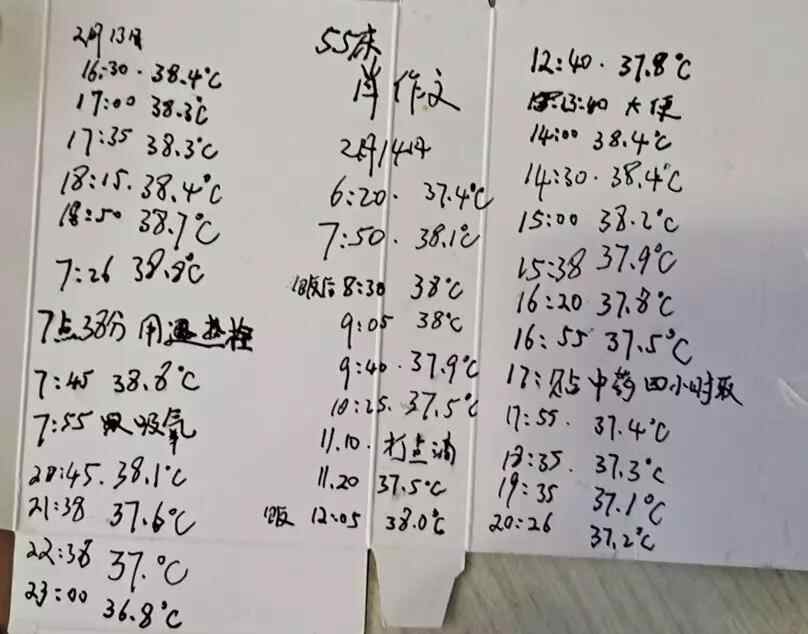 2月13日
16:30. 38.4℃
17:00 38.3℃
17:35 38.3℃
18:15. 38.4℃
18:50 38.7℃
7:26 38.8℃
7点38分 用退热栓
7:45 38.8℃
7:55 吸氧
20:45. 38.1℃
21:38 37.6℃
22:38 37.℃
23:00 36.8℃
55床
肖作文
2月14日
6:20. 37.4℃
7:50. 38.1℃
饭后 8:30 38℃
9:05 38℃
9:40. 37.9℃
10:25. 37.5℃
11.10. 打点滴
11.20 37.5℃
饭 12:05 38.0℃
12:40. 37.8℃
13:40 大便
14:00 38.4℃
14:30. 38.4℃
15:00 38.2℃
15:38 37.9℃
16:20 37.8℃
16:55 37.5℃
17: 贴中药四小时取
17:55. 37.4℃
18:35. 37.3℃
19:35 37.1℃
20:26 37.2℃